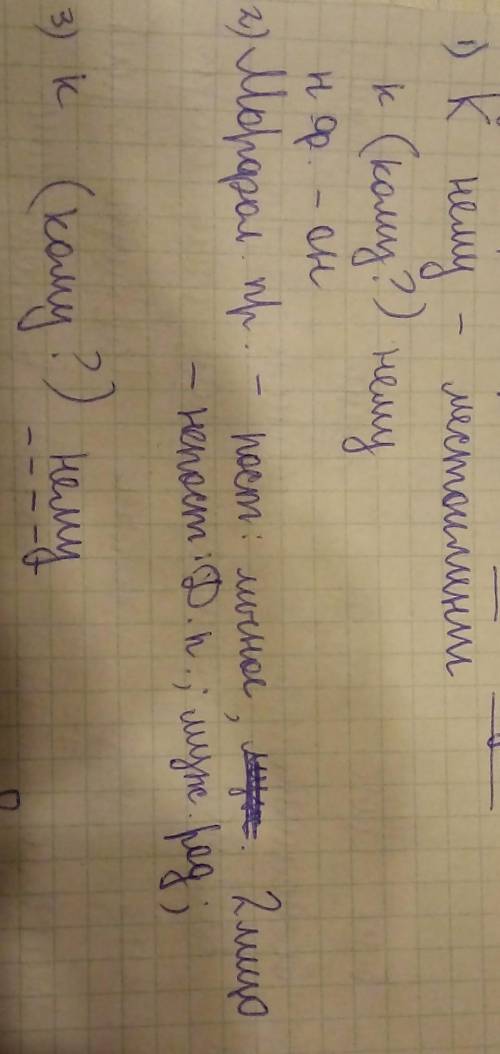 1) К нему - местоимени
к (кому?) нему
н.ф. - он
2) Морфол. пр. - пост: личное, 2 лицо
- непост: Д.п.; муж. род;
3) к (кому?) нему